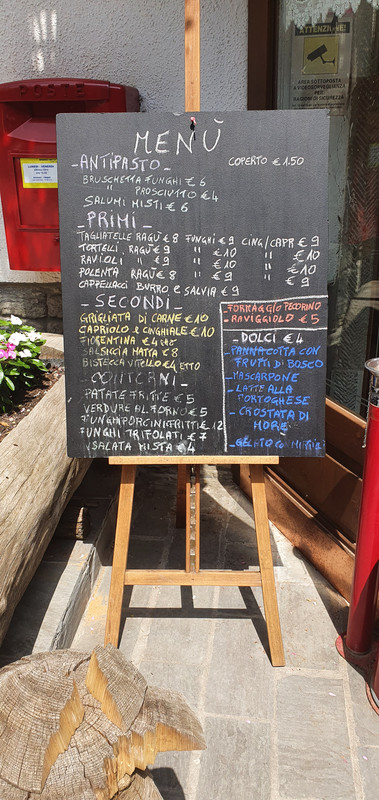 ATTENZIONE!
AREA SOTTOPOSTA
A VIDEOSORVEGLIANZA
PER
RAGIONI DI SICUREZZA
POSTE
MENÙ
- ANTIPASTO -
COPERTO € 1.50
BRUSCHETTA FUNGHI € 6
" PROSCIUTTO € 4
SALUMI MISTI € 6
- PRIMI -
TAGLIATELLE RAGÙ € 8 FUNGHI € 9 CING/CAPR € 9
TORTELLI RAGÙ € 9 " € 10 " € 10
RAVIOLI " € 9 " € 10 " € 10
POLENTA RAGÙ € 8 " € 9 " € 9
CAPPELLACCI BURRO e SALVIA € 9
- SECONDI -
GRIGLIATA DI CARNE € 10
CAPRIOLO e CINGHIALE € 10
FIORENTINA € 4 etto
SALSICCIA MATTA € 8
BISTECCA VITELLO € 4 ETTO
- CONTORNI -
PATATE FRITTE € 5
VERDURE AL FORNO € 5
FUNGHI PORCINI FRITTI € 12
FUNGHI TRIFOLATI € 7
SALATA MISTA € 4
- FORMAGGIO PECORINO
- RAVIGGIOLO € 5
- DOLCI € 4
- PANNA COTTA CON
FRUTTI DI BOSCO
- MASCARPONE
- LATTE ALLA
PORTOGHESE
- CROSTATA DI
MORE
- GELATO